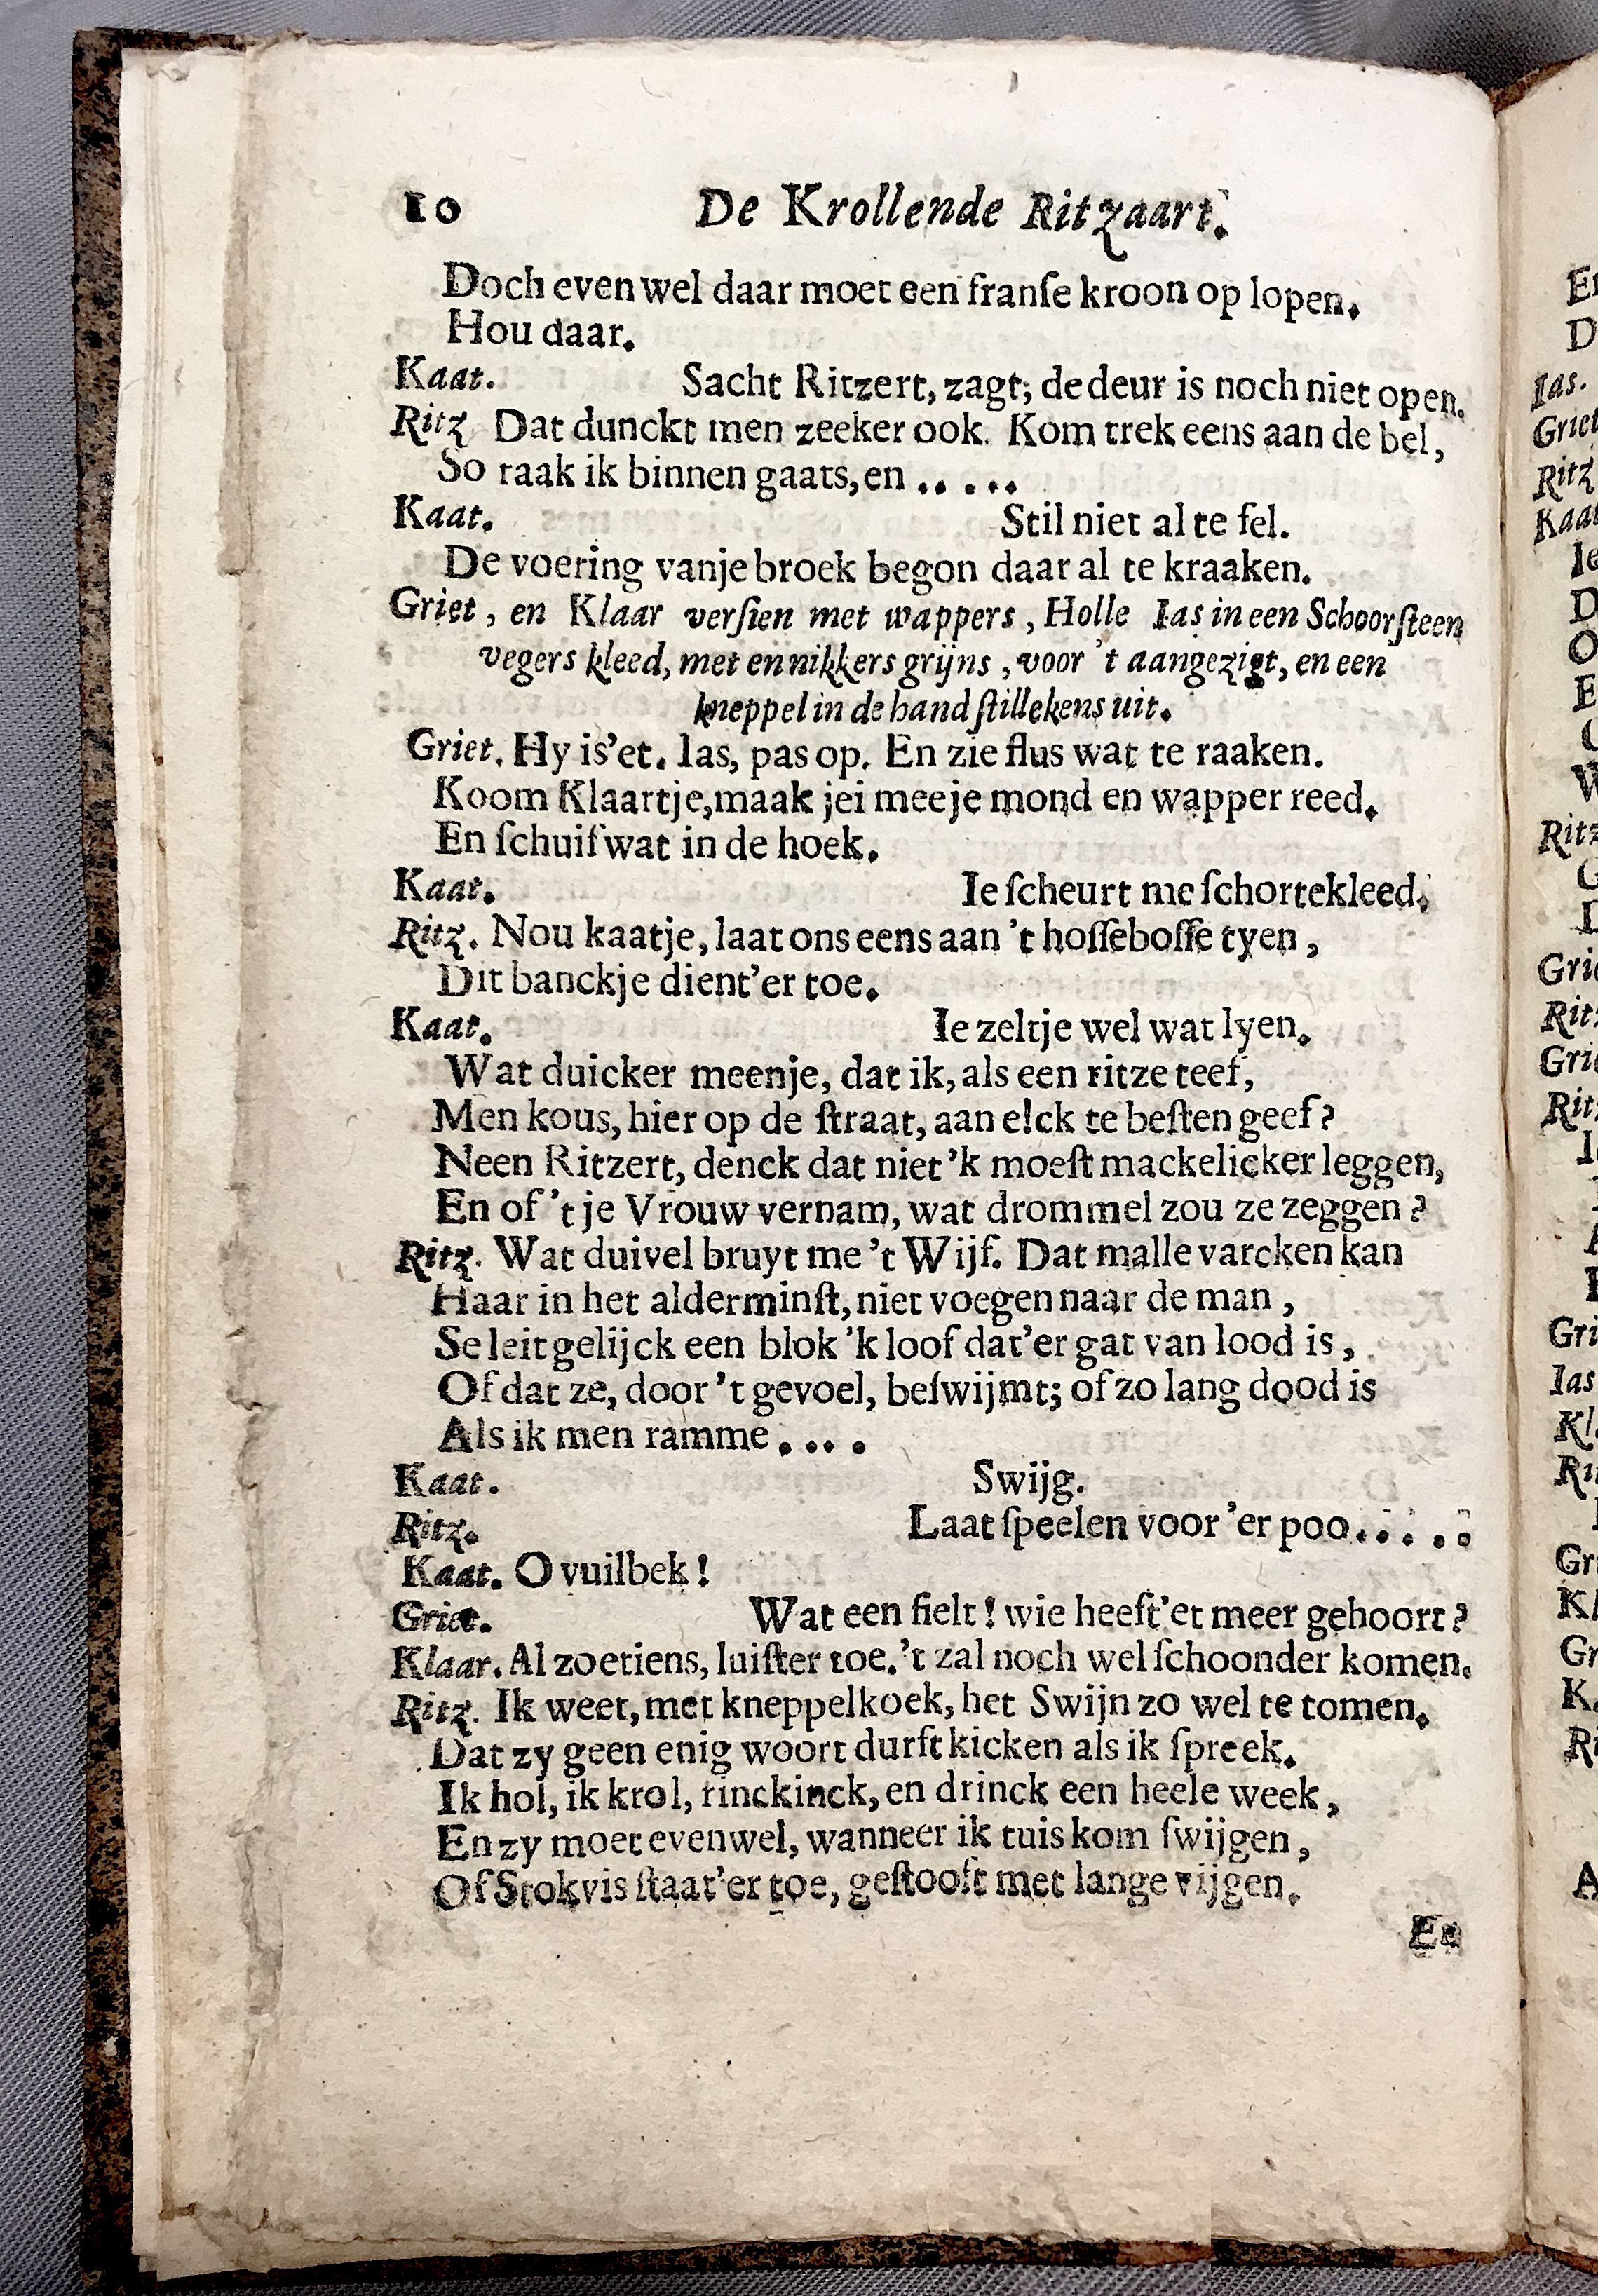 10 De Krollende Ritzaart.
Doch evenwel daar moet een franſe kroon op lopen.
Hou daar.
Kaat. Sacht Ritzert, zagt, de deur is noch niet open.
Ritz Dat dunckt men zeeker ook. Kom trek eens aan de bel,
So raak ik binnen gaats, en .....
Kaat. Stil niet al te fel.
De voering van je broek begon daar al te kraaken.
Griet, en Klaar verſien met wappers, Holle Ias in een Schoorſteen
vegers kleed, met en nikkers grijns, voor 't aangezigt, en een
kneppel in de hand ſtillekens uit.
Griet. Hy is'et. Ias, pas op. En zie flus wat te raaken.
Koom Klaartje, maak jei mee je mond en wapper reed.
En ſchuif wat in de hoek.
Kaat. Ie ſcheurt me ſchortekleed.
Ritz. Nou kaatje, laat ons eens aan 't hoſſeboſſe tyen,
Dit banckje dient'er toe.
Kaat. Ie zeltje wel wat lyen.
Wat duicker meenje, dat ik, als een ritze teef,
Men kous, hier op de ſtraat, aan elck te beſten geef?
Neen Ritzert, denck dat niet 'k moeſt mackelicker leggen,
En of 't je Vrouw vernam, wat drommel zou ze zeggen?
Ritz. Wat duivel bruyt me 't Wijf. Dat malle varcken kan
Haar in het alderminſt, niet voegen naar de man,
Se leit gelijck een blok 'k loof dat'er gat van lood is,
Of dat ze, door 't gevoel, beſwijmt; of zo lang dood is
Als ik men ramme....
Kaat. Swijg.
Ritz. Laat ſpeelen voor 'er poo.....
Kaat. O vuilbek!
Griet. Wat een fielt! wie heeft'et meer gehoort?
Klaar. Al zoetiens, luiſter toe. 't zal noch wel ſchoonder komen.
Ritz. Ik weet, met kneppelkoek, het Swijn zo wel te tomen.
Dat zy geen enig woort durft kicken als ik ſpreek.
Ik hol, ik krol, rinckinck, en drinck een heele week,
En zy moet evenwel, wanneer ik tuis kom ſwijgen,
Of Stokvis ſtaat'er toe, geſtooft met lange vijgen.
En